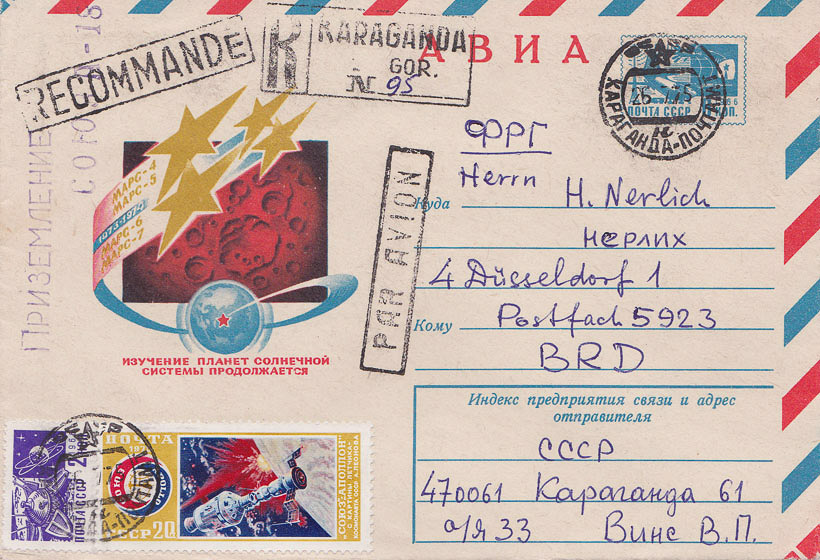 RECOMMANDE
R
KARAGANDA
GOR.
№ 95
АВИА
ПОЧТА СССР
КОП.
КАРАГАНДА-ПОЧТАМТ
ПРИЗЕМЛЕНИЕ
МАРС-4
МАРС-5
МАРС-6
МАРС-7
ИЗУЧЕНИЕ ПЛАНЕТ СОЛНЕЧНОЙ
СИСТЕМЫ ПРОДОЛЖАЕТСЯ
PAR AVION
ФРГ
Куда
Herrn H. Nerlich
нерлих
4 Düsseldorf 1
Кому
Postfach 5923
BRD
Индекс предприятия связи и адрес
отправителя
СССР
470061 Караганда 61
а/я 33 Винс В.П.
ПОЧТА СССР
ПОЧТА
СССР 20к
"СОЮЗ-АПОЛЛОН"
С КАРТИНЫ ЛЕТЧИКА-
КОСМОНАВТА СССР А.ЛЕОНОВА